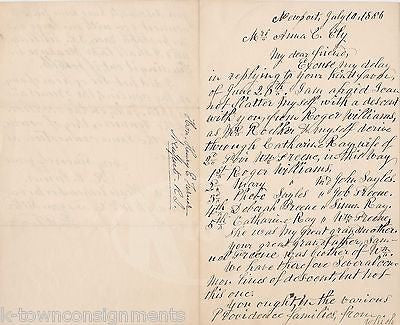 Newport, July 10, 1886
Mrs Anna C. Ely
My dear friend,
Excuse my delay
in replying to your kind favor
of June 28th. I am afraid I can
not flatter myself with a descent
with you, from Roger Williams,
as Mrs & myself derive
through Catharine Ray wife of
2d Gov Wm Greene, in this way
1st Roger Williams,
2d Mary " Md John Sayles.
3d Phebe Sayles " Job Greene.
4th Deborah Greene " Simon Ray.
5th Catharine Ray " Wm Greene,
She was my great grandmother
your great grandfather, Sam-
uel Greene was brother of Wm
We have therefore several com-
mon lines of descent, but not
this one.
You ought, in the various
Providence families, from
which
Hon Henry E. Turner
Newport R.I.
k-townconsignments